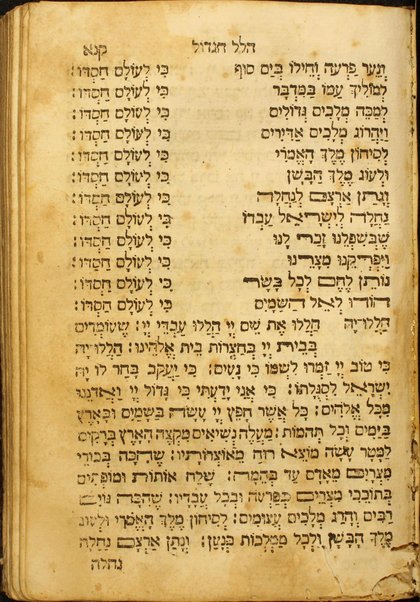 הלל הגדול קנא
וְנִעֵר פַּרְעֹה וְחֵילוֹ בְיַם סוּף כִּי לְעוֹלָם חַסְדּוֹ:
לְמוֹלִיךְ עַמּוֹ בַּמִּדְבָּר כִּי לְעוֹלָם חַסְדּוֹ:
לְמַכֵּה מְלָכִים גְּדוֹלִים כִּי לְעוֹלָם חַסְדּוֹ:
וַיַּהֲרוֹג מְלָכִים אַדִּירִים כִּי לְעוֹלָם חַסְדּוֹ:
לְסִיחוֹן מֶלֶךְ הָאֱמֹרִי כִּי לְעוֹלָם חַסְדּוֹ:
וּלְעוֹג מֶלֶךְ הַבָּשָׁן כִּי לְעוֹלָם חַסְדּוֹ:
וְנָתַן אַרְצָם לְנַחֲלָה כִּי לְעוֹלָם חַסְדּוֹ:
נַחֲלָה לְיִשְׂרָאֵל עַבְדּוֹ כִּי לְעוֹלָם חַסְדּוֹ:
שֶׁבְּשִׁפְלֵנוּ זָכַר לָנוּ כִּי לְעוֹלָם חַסְדּוֹ:
וַיִּפְרְקֵנוּ מִצָּרֵינוּ כִּי לְעוֹלָם חַסְדּוֹ:
נוֹתֵן לֶחֶם לְכָל בָּשָׂר כִּי לְעוֹלָם חַסְדּוֹ:
הוֹדוּ לְאֵל הַשָּׁמַיִם כִּי לְעוֹלָם חַסְדּוֹ:
הַלְלוּיָהּ הַלְלוּ אֶת שֵׁם יְיָ הַלְלוּ עַבְדֵי יְיָ: שֶׁעוֹמְדִים
בְּבֵית יְיָ בְּחַצְרוֹת בֵּית אֱלֹהֵינוּ: הַלְלוּ יָהּ
כִּי טוֹב יְיָ זַמְּרוּ לִשְׁמוֹ כִּי נָעִים: כִּי יַעֲקֹב בָּחַר לוֹ יָהּ
יִשְׂרָאֵל לִסְגֻלָּתוֹ: כִּי אֲנִי יָדַעְתִּי כִּי גָדוֹל יְיָ וַאֲדֹנֵנוּ
מִכָּל אֱלֹהִים: כֹּל אֲשֶׁר חָפֵץ יְיָ עָשָׂה בַּשָּׁמַיִם וּבָאָרֶץ
בַּיַּמִּים וְכָל תְּהֹמוֹת: מַעֲלֶה נְשִׂיאִים מִקְצֵה הָאָרֶץ בְּרָקִים
לַמָּטָר עָשָׂה מוֹצֵא רוּחַ מֵאוֹצְרוֹתָיו: שֶׁהִכָּה בְּכוֹרֵי
מִצְרַיִם מֵאָדָם עַד בְּהֵמָה: שָׁלַח אוֹתוֹת וּמוֹפְתִים
בְּתוֹכֵכִי מִצְרַיִם בְּפַרְעֹה וּבְכָל עֲבָדָיו: שֶׁהִכָּה גּוֹיִם
רַבִּים וְהָרַג מְלָכִים עֲצוּמִים: לְסִיחוֹן מֶלֶךְ הָאֱמֹרִי וּלְעוֹג
מֶלֶךְ הַבָּשָׁן וּלְכֹל מַמְלְכוֹת כְּנָעַן: וְנָתַן אַרְצָם נַחֲלָה
נַחֲלָה